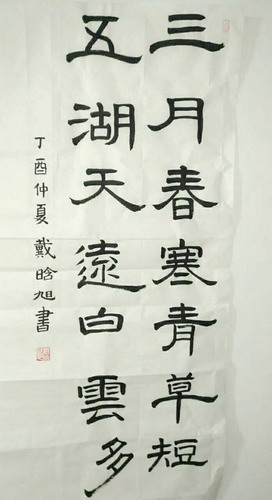 三月春寒青草短
五湖天遠白雲多
丁酉仲夏戴晗旭書